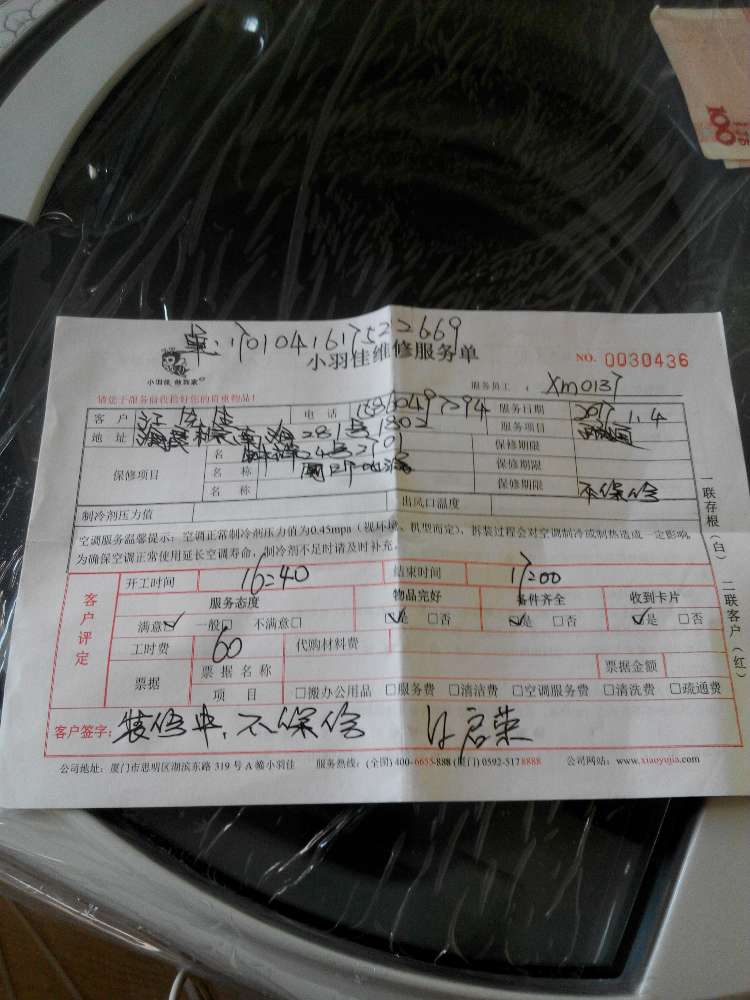 100
单:1701041617522669
小羽佳维修服务单
NO. 0030436
小羽佳 做到家
服务员工: Xm0137
请您于服务前收捡好您的贵重物品!
客 户 电 话 服务日期 2017.1.4
地 址 281号1802 服务项目
保修项目 名 24号2701 保修期限
名 称 保修期限
名 称 保修期限 不保修
制冷剂压力值 出风口温度
空调服务温馨提示:空调正常制冷剂压力值为0.45mpa(视环境、机型而定),拆装过程会对空调制冷或制热造成一定影响,
为确保空调正常使用延长空调寿命,制冷剂不足时请及时补充。
一联存根(白) 二联客户(红)
客户评定
开工时间 16:40 结束时间 17:00
服务态度 物品完好 备件齐全 收到卡片
满意☑ 一般□ 不满意□ ☑是 □否 ☑是 □否 ☑是 □否
工时费 60 代购材料费
票据 票据名称 票据金额
项 目 □搬办公用品 □服务费 □清洁费 □空调服务费 □清洗费 □疏通费
客户签字: 装修中,不保修
公司地址:厦门市思明区湖滨东路 319 号 A 幢小羽佳 服务热线:(全国)400-6655-888 (厦门) 0592-5178888 公司网站:www.xiaoyujia.com